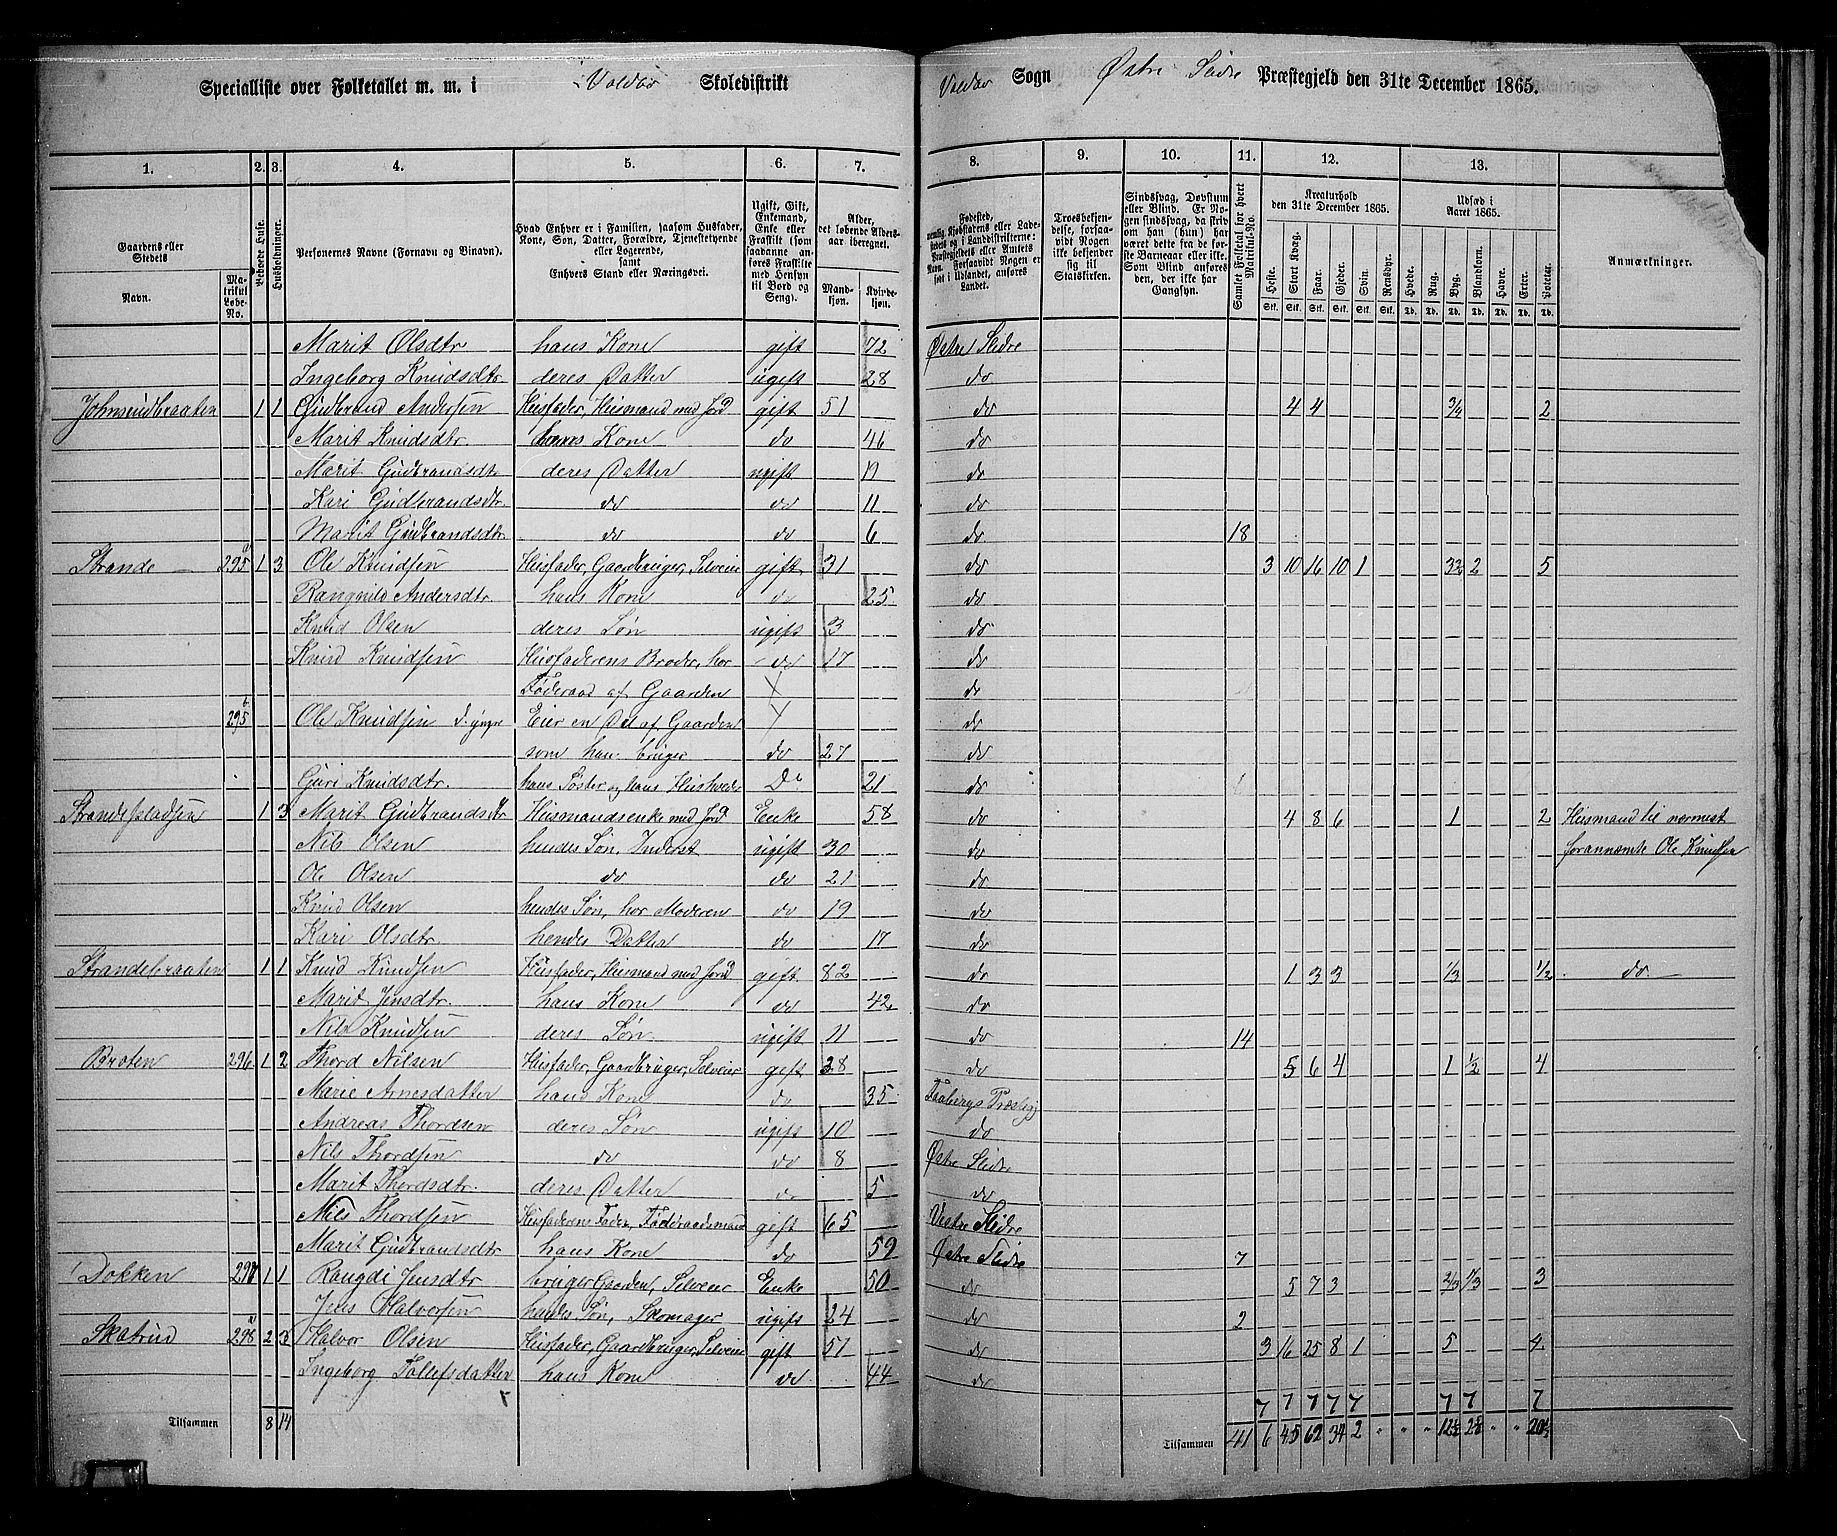 Specialliste over Folketallet m. m. i Voldbo Skoledistrikt Voldbo Sogn Østre Slidre Præstegjeld den 31te December 1865.
1. 2. 3. 4. 5. 6. 7. 8. 9. 10. 11. 12. 13.
Gaardens eller Stedets Navn. Matrikul Løbe-No. Beboede Huse. Husholdninger. Personernes Navne (Fornavn og Binavn). Hvad Enhver er i Familien, saasom Husfader, Kone, Søn, Datter, Forældre, Tjenestetyende eller Logerende, samt Enhvers Stand eller Næringsvei. Ugift, Gift, Enkemand, Enke eller Fraskilt (som saadanne anføres Fraskilte med Hensyn til Bord og Seng). Alder, det løbende Alders-aar iberegnet. Mandkjøn. Kvindekjøn. Fødested, Troesbekjendelse, forsaavidt Nogen ikke bekjender sig til Statskirken. Sindssvag, Døvstum eller Blind. Er Nogen sindssvag, da skriv om han (hun) har været dette fra de første Barneaar eller ikke. Som Blind anføres den, der ikke har Gangsyn. Samlet Folketal for hvert Matrikul-No. Kreaturhold den 31te December 1865. Heste. Stort Kvæg. Faar. Gjeder. Svin. Rensdyr. Udsæd i Aaret 1865. Hvede. Rug. Byg. Blandkorn. Havre. Erter. Poteter. Anmærkninger.
Marit Olsdtr hans Kone gift 72 Østre Slidre
Ingeborg Knudsdtr deres Datter ugift 28 do
Johnsrudbraaten 1 1 Gudbrand Andersen Husfader, Husmand med Jord gift 51 do 4 4 3/4 2
Marit Knudsdtr hans Kone do 46 do
Marit Gudbrandsdtr deres Datter ugift 19 do
Kari Gudbrandsdtr do do 11 do
Marit Gudbrandsdtr do do 6 do 18
Strande 295 a 1 3 Ole Knudsen Husfader, Gaardbruger, Selveier gift 31 do 3 10 16 10 1 3½ 2 5
Rangnild Andersdtr hans Kone do 25 do
Knud Olsen deres Søn ugift 3 do
Knud Knudsen Husfaderens Broder, har do 17 do
Føderaad af Gaarden do
295 b Ole Knudsen d. yngre Eier en Del af Gaarden do
som han bruger do 27 do
Guri Knudsdtr hans Søster og hans Do 21 do
1 3 Marit Gudbrandsdtr Husmandsenke med Jord Enke 58 do 4 8 6 1 2 Husmand til nærmest
Nils Olsen hendes Søn, Inderst ugift 30 do forannævnte Ole Knudsen
Ole Olsen do do 21 do
Knud Olsen hendes Søn, hos Moderen do 19 do
Kari Olsdtr hendes Datter do 17 do
Strandebraaten 1 1 Knud Knudsen Husfader, Husmand med Jord gift 82 do 1 3 3 1/3 1/2 do
Marit Jensdtr. hans Kone do 42 do
Nils Knudsen deres Søn ugift 11 do 14
Braten 296 1 2 Thord Nilsen Husfader, Gaardbruger, Selveier gift 38 do 5 6 4 1 ½ 4
Marie Arnesdatter hans Kone do 35 Faabergs Præstegj
Andreas Thordsen deres Søn ugift 10 do
Nils Thordsen do do 8 Østre Slidre
Marit Thordsdtr. deres Datter do 5 do
Nils Thordsen Husfaderens Fader, Føderaadsmand gift 65 Vestre Slidre
Marit Gudbrandsdtr hans Kone do 59 Østre Slidre 7
Dokken 297 1 1 Rangdi Jensdtr bruger Gaarden, Selveier Enke 50 do 5 7 3 2/3 1/3 3
Jens Halvorsen hendes Søn, Skomager ugift 24 do 2
Skatrud 298 a 2 3 Halvor Olsen Husfader, Gaardbruger, Selveier gift 51 do 3 16 25 8 1 5 4
Ingeborg Tollefsdatter hans Kone do 44 do
7 7 7 7 7 7 7 7
Tilsammen 8 14 Tilsammen 41 6 45 62 34 2 " " "